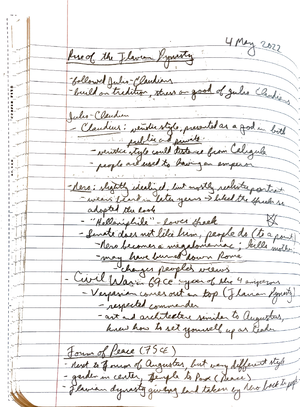 4 May 2022
Rise of the Flavian Dynasty
- followed Julio-Claudians
- build on tradition, stress on good of Julio Claudians
Julio-Claudian
- Claudius: veristic style, presented as a god in both
public and private
- veristic style could distance from Caligula
- people are used to having an emperor
- Nero: slightly idealized, but mostly realistic portrait
- wears beard in later years → liked the Greeks so
adopted the look
- "Hellenophile" - loves Greek
- Senate does not like him, people do (to a point)
- Nero becomes a megalomaniac; kills mother
- may have burned down Rome
- changes peoples views
- Civil War in 69 CE - year of the 4 emperors
- Vespasian comes out on top (Flavian Dynasty)
- respected commander
- art and architecture similar to Augustus,
knew how to set yourself up as leader
Forum of Peace (75 CE)
- next to Forum of Augustus, but very different style
- garden in center, Temple to Pax (Peace)
- Flavian dynasty giving land taken by Nero back to people